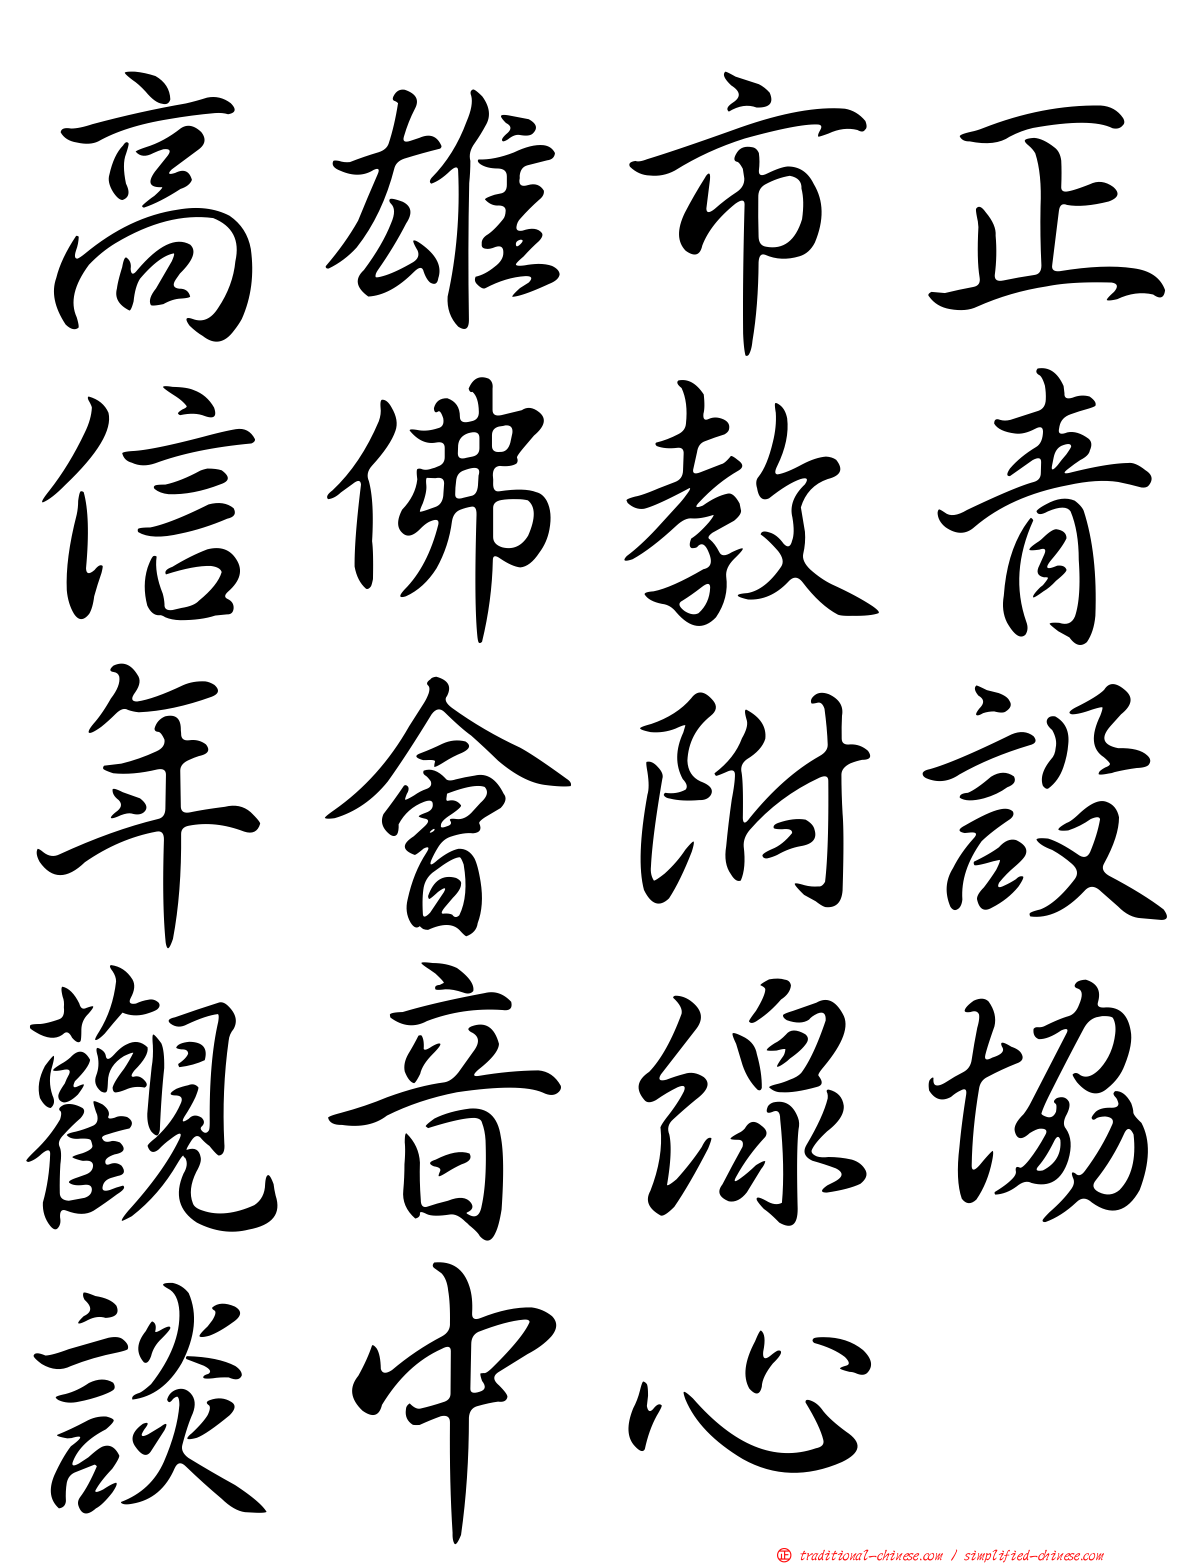 高雄市正
信佛教青
年會附設
觀音線協
談中心
正 traditional-chinese.com / simplified-chinese.com